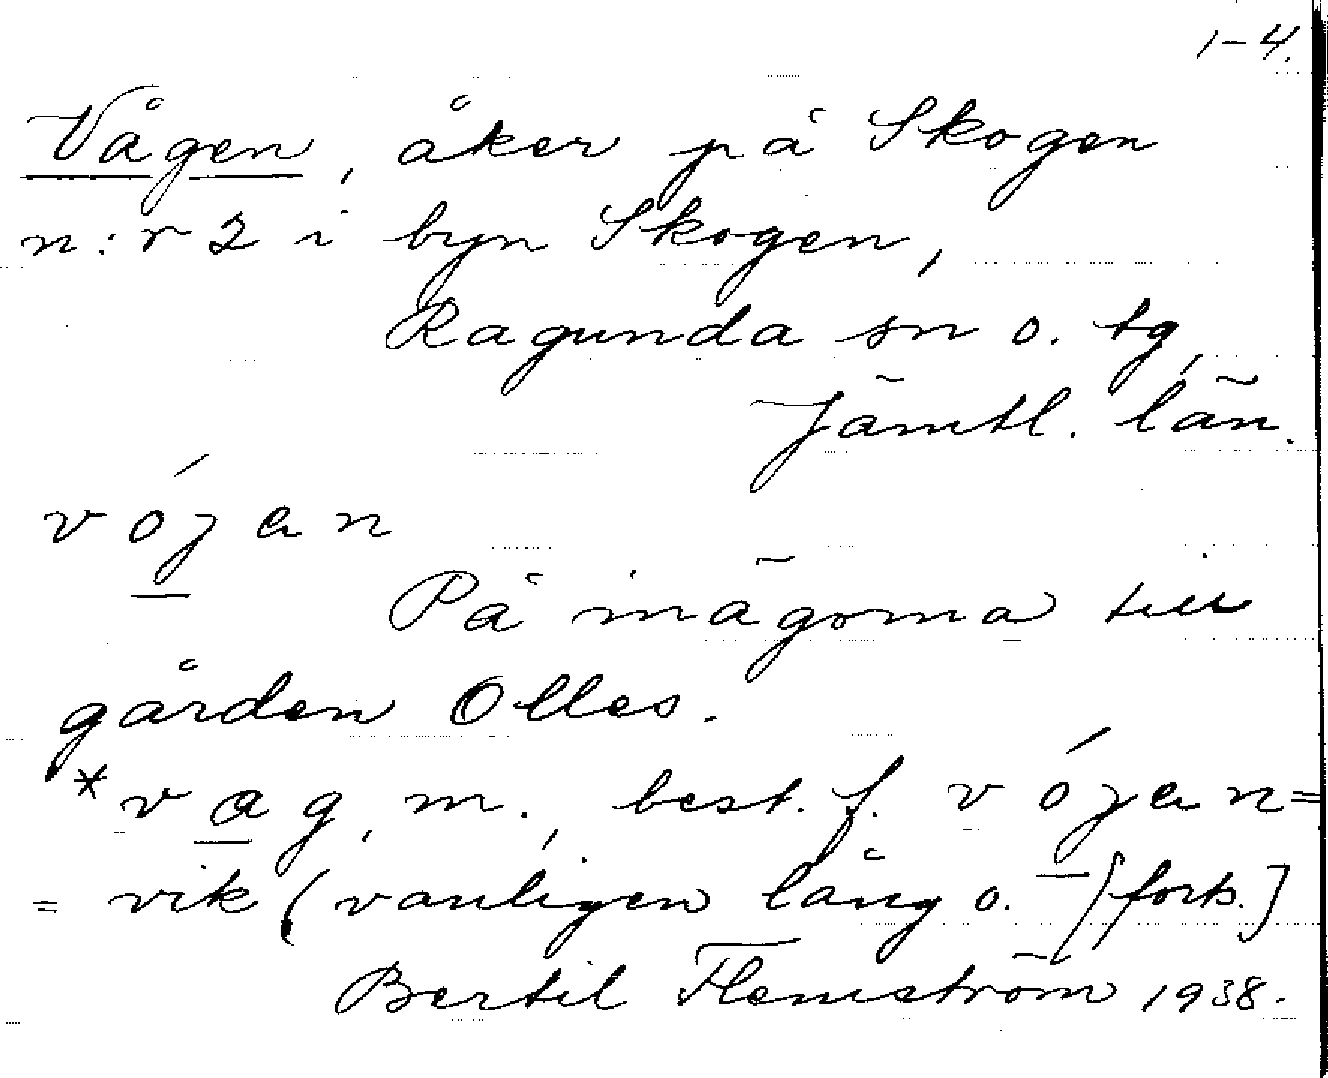 1-4.
Vågen, åker på Skogen
n:r 2 i byn Skogen,
Ragunda sn o. tg,
Jämtl. län.
vójan
På inägorna till
gården Olles.
*vag, m., best. f. vójan =
= vik (vanligen lång o. [forts.]
Bertil Flemström 1938.